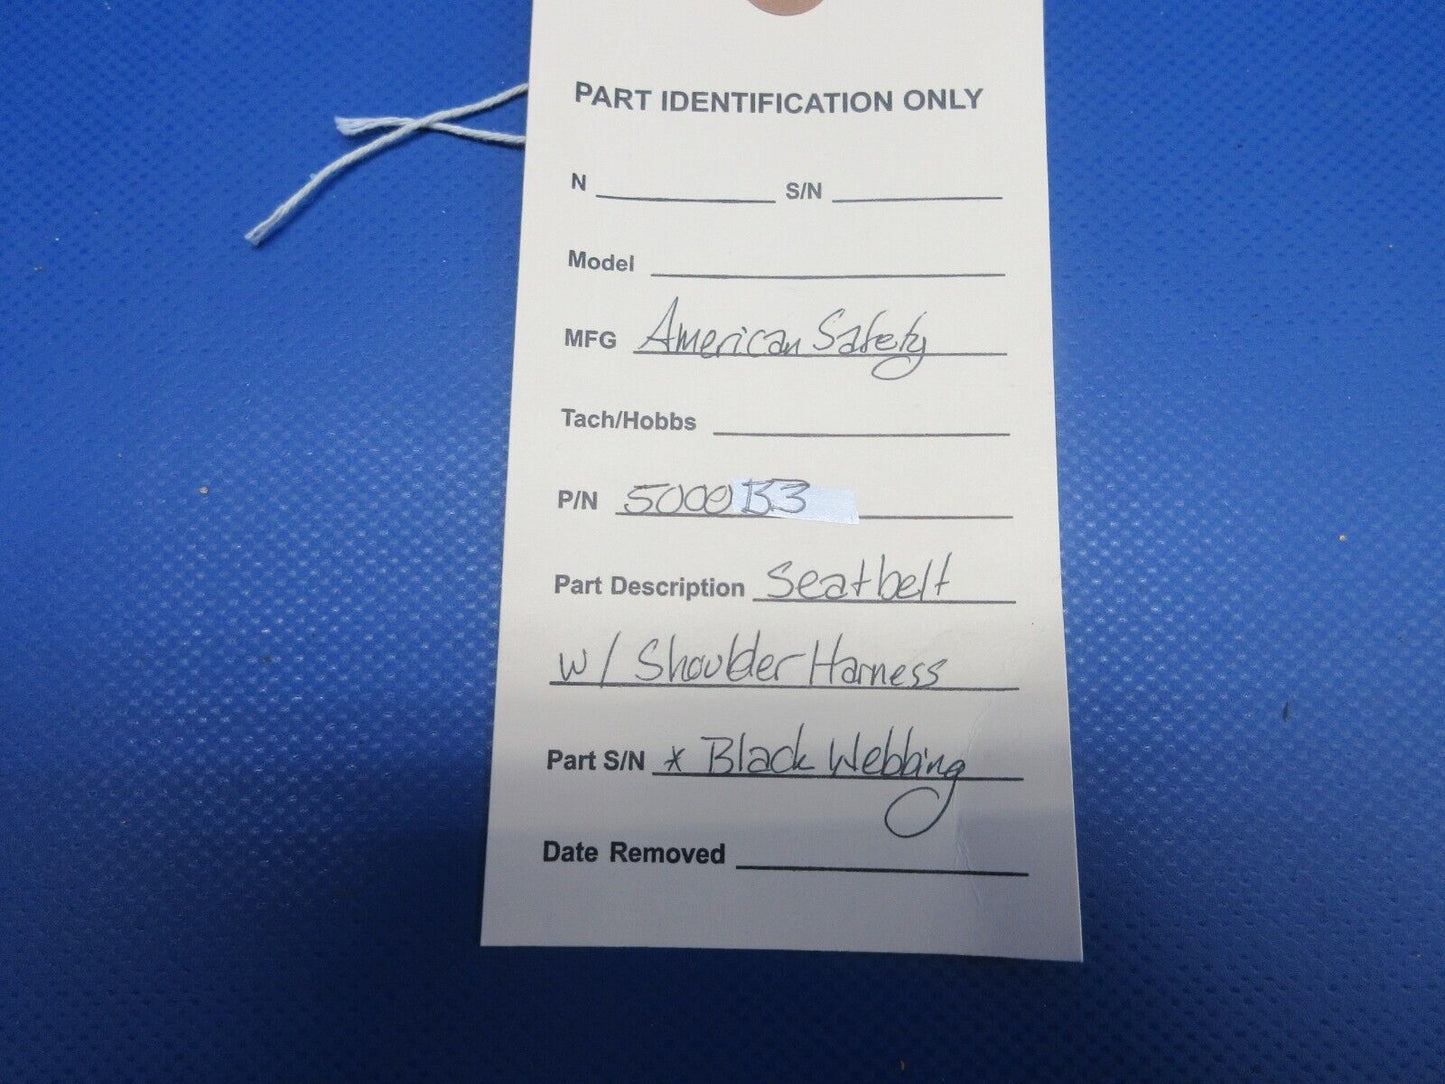 PART IDENTIFICATION ONLY
N S/N
Model
MFG American Safety
Tach/Hobbs
P/N 5000B3
Part Description Seatbelt
w/ Shoulder Harness
Part S/N * Black Webbing
Date Removed